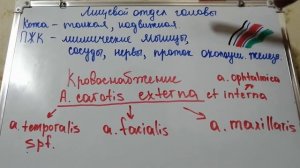 Лицевой отдел головы
Кожа - тонкая, подвижная
ПЖК - мимические мышцы,
сосуды, нервы, проток околоуш. железы
Кровоснабжение
a. ophtalmica
A. carotis externa et interna
a. temporalis spf.
a. facialis
a. maxillaris